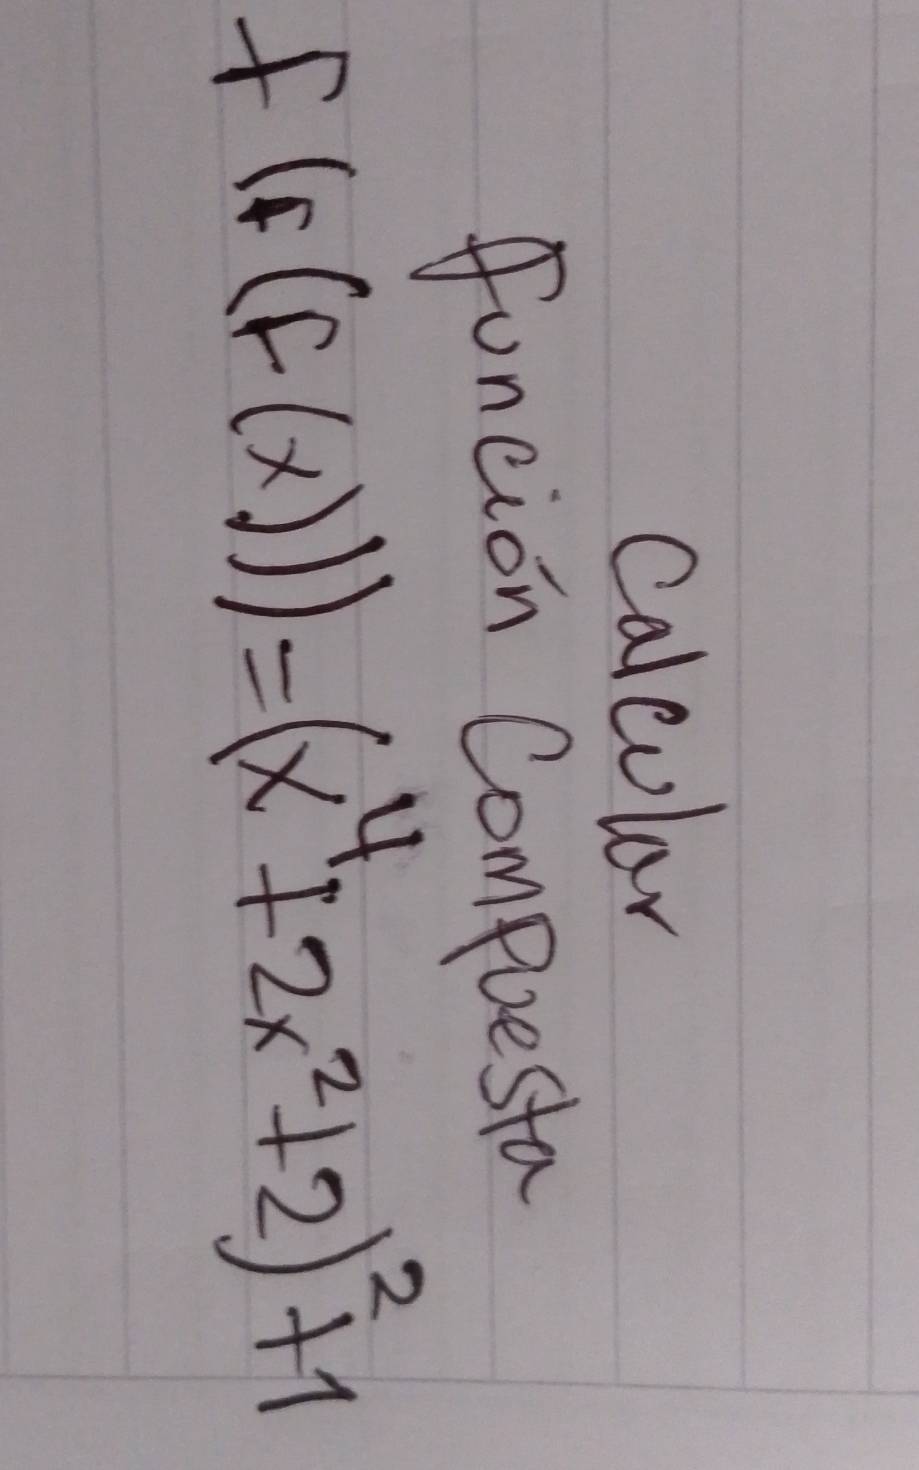 Calcular
función Compuesta
f(F(F(x)))=(x⁴+2x²+2)²+1